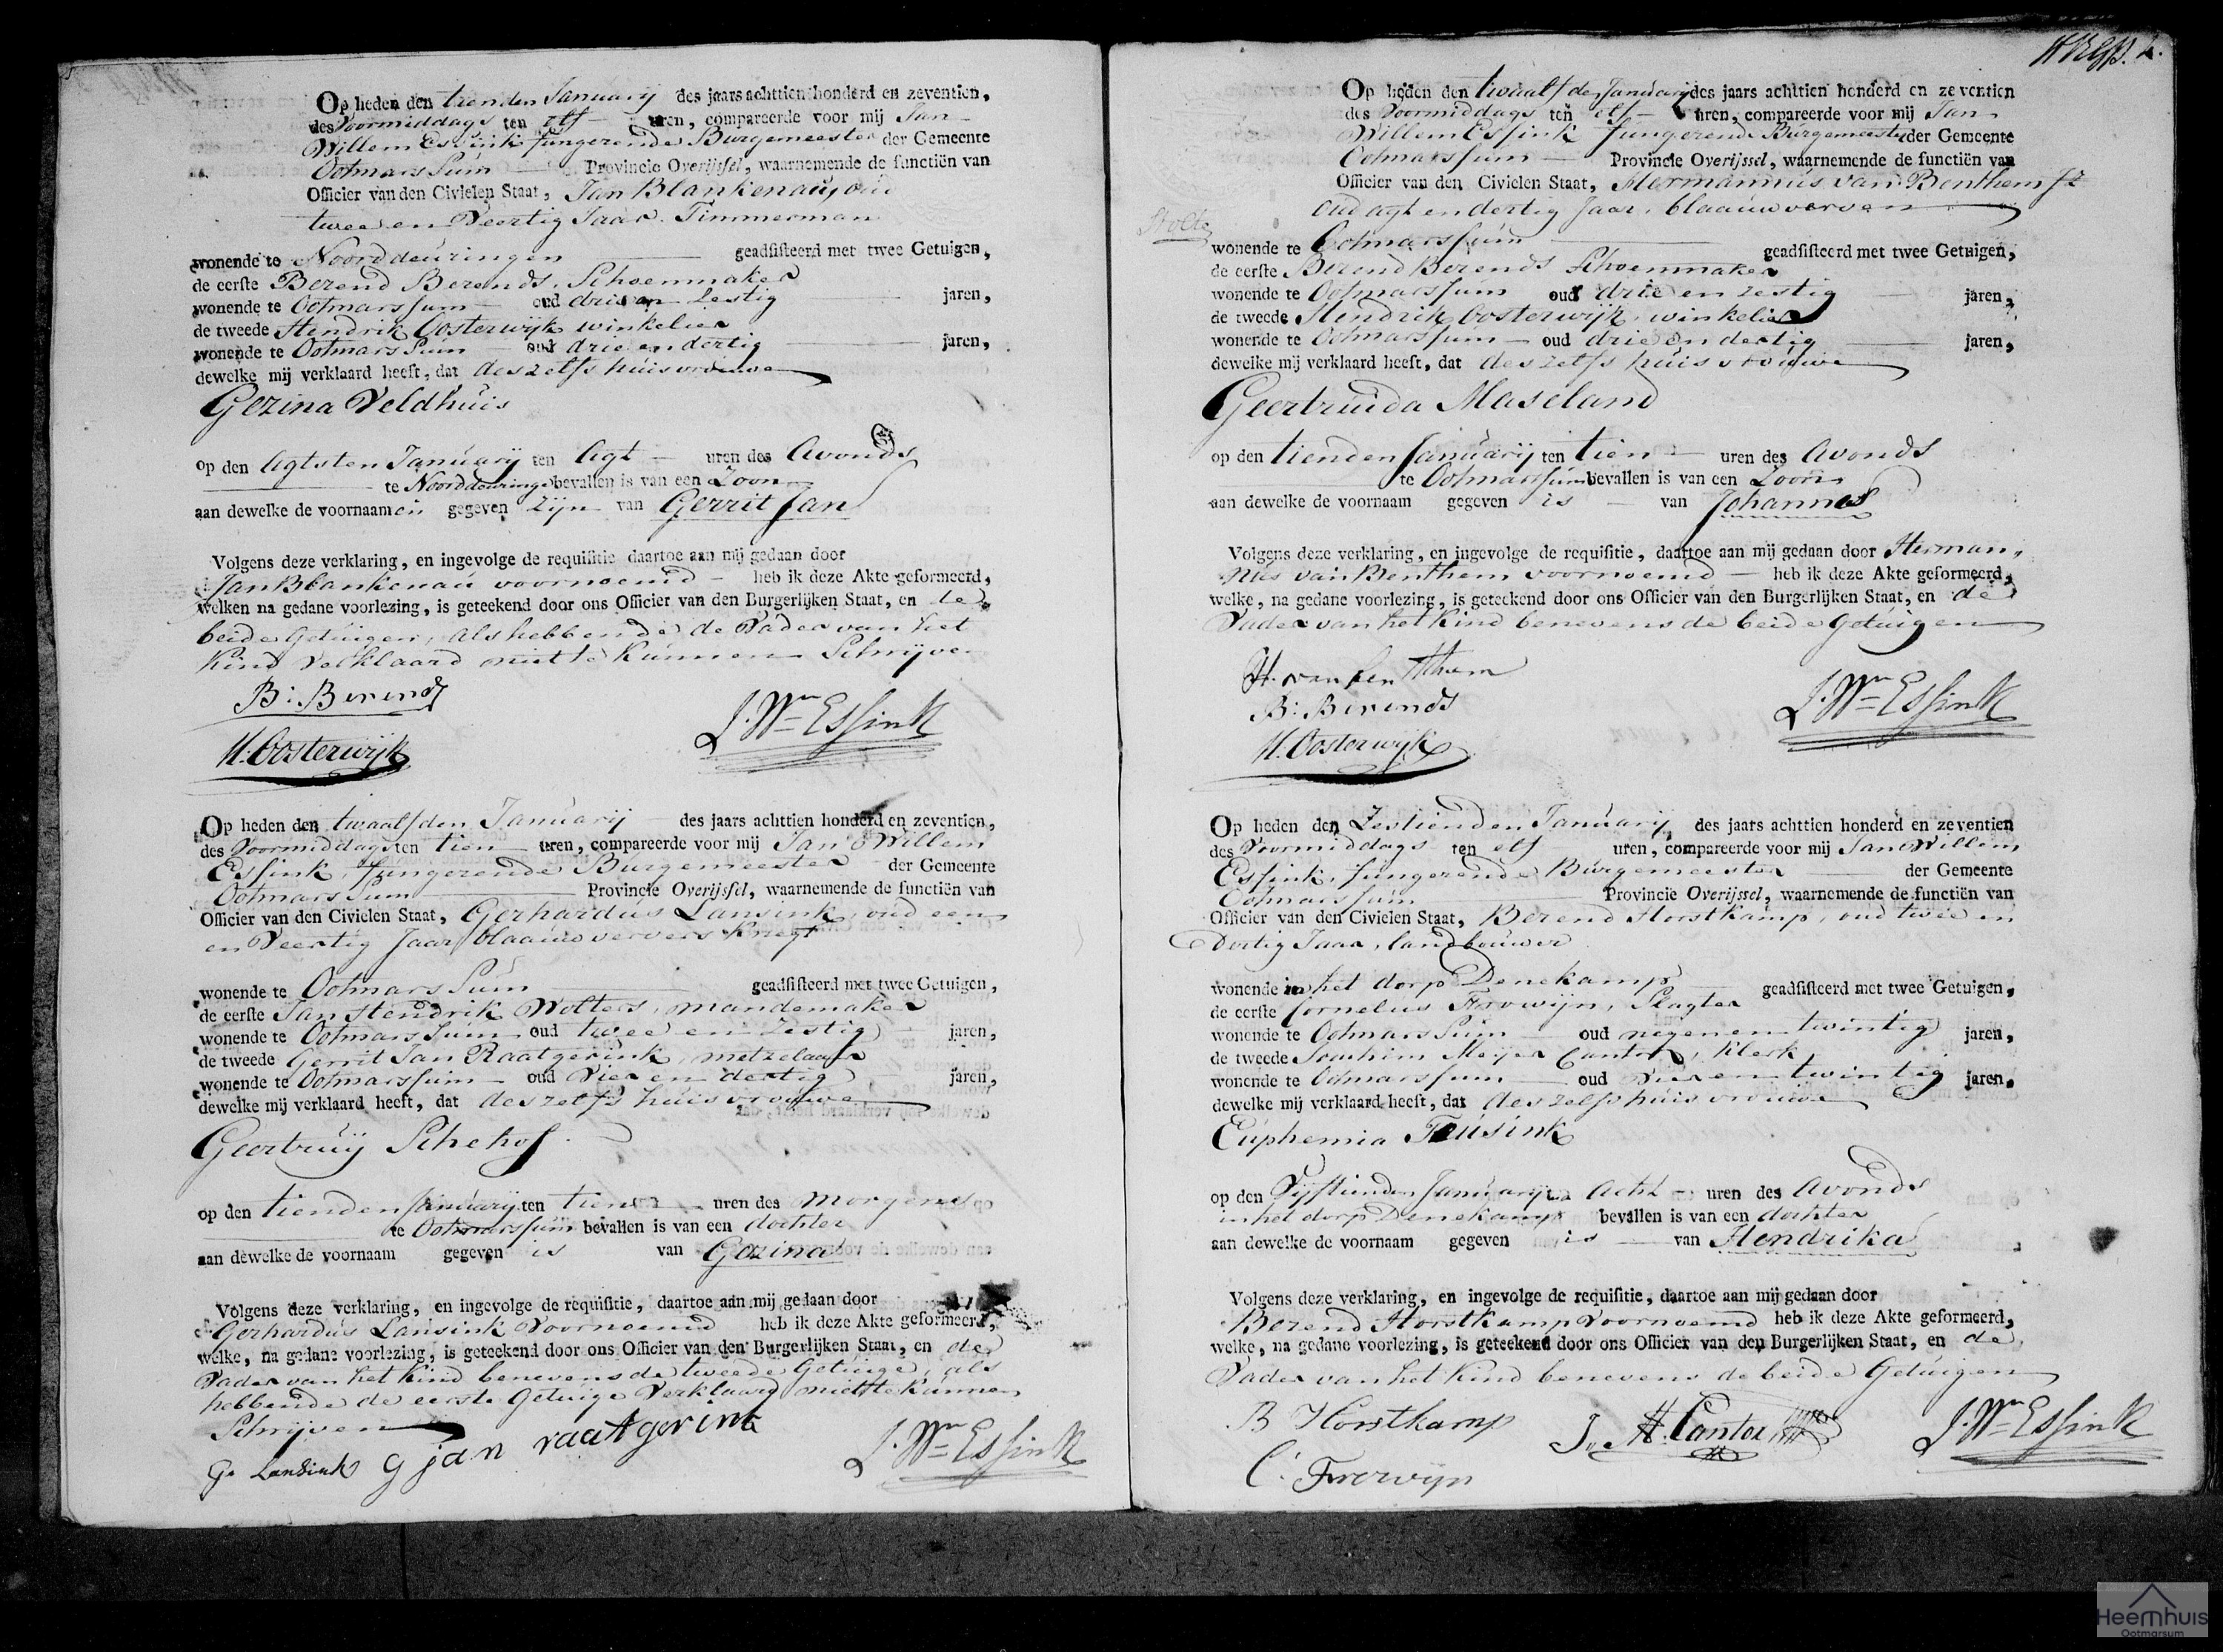 Op heden den tienden Januarij des jaars achttien honderd en zeventien,
des Voormiddags ten elf uren, compareerde voor mij Jan
Willem Essink fungerende Burgemeester der Gemeente
Ootmarssum Provincie Overijssel, waarnemende de functiën van
Officier van den Civielen Staat, Jan Blankenau, oud
twee en Veertig Jaar. Timmerman
wonende te Noorddeuringen geadsisteerd met twee Getuigen,
de eerste Berend Berends, Schoenmaker
wonende te Ootmarssum oud drie en Zestig jaren,
de tweede Hendrik Oosterwijk winkelier
wonende te Ootmarssum oud drie en dertig jaren,
dewelke mij verklaard heeft, dat deszelfs huisvrouwe
Gezina Veldhuis
op den Agtsten Januarij ten Agt uren des Avonds
te Noorddeuringe bevallen is van een Zoon
aan dewelke de voornaamen gegeven zijn van Gerrit Jan
Volgens deze verklaring, en ingevolge de requisitie daartoe aan mij gedaan door
Jan Blankenau voornoemd heb ik deze Akte geformeerd,
welken na gedane voorlezing, is geteekend door ons Officier van den Burgerlijken Staat, en de
beide Getuigen, als hebbende de Vader van het
Kind verklaard niet te Kunnen Schrijven
B: Berends
J. Wm Essink
H. Oosterwijk
Op heden den twaalfden Januarij des jaars achttien honderd en zeventien,
des Voormiddags ten tien uren, compareerde voor mij Jan Willem
Essink, fungerende Burgemeester der Gemeente
Ootmarssum Provincie Overijssel, waarnemende de functiën van
Officier van den Civielen Staat, Gerhardus Lansink, oud een
en Veertig Jaar, blaauwververs Knegt
wonende te Ootmarssum geadsisteerd met twee Getuigen,
de eerste Jan Hendrik Wolters, mandemaker
wonende te Ootmarssum oud twee en Zestig jaren,
de tweede Gerrit Jan Raatgerink, metzelaar
wonende te Ootmarssum oud Vier en dertig jaren,
dewelke mij verklaard heeft, dat deszelfs huisvrouwe
Geertruij Schehof
op den tienden Januarij ten tien uren des morgens
te Ootmarssum bevallen is van een dochter
aan dewelke de voornaam gegeven is van Gezina
Volgens deze verklaring, en ingevolge de requisitie, daartoe aan mij gedaan door
Gerhardus Lansink Voornoemd heb ik deze Akte geformeerd,
welke, na gedane voorlezing, is geteekend door ons Officier van den Burgerlijken Staat, en de
Vader van het Kind benevens de tweede Getuige, als
hebbende de eerste Getuige Verklaard niet te Kunnen
Schrijven
G. Lansink g jan raatgerink
J. Wm Essink
Op heden den twaalfden Januarij des jaars achttien honderd en zeventien
des Voormiddags ten elf uren, compareerde voor mij Jan
Willem Essink fungerende Burgemeester der Gemeente
Ootmarssum Provincie Overijssel, waarnemende de functiën van
Officier van den Civielen Staat, Hermannus van Benthem
oud agt en dertig Jaar, blaauwverver
wonende te Ootmarssum geadsisteerd met twee Getuigen,
de eerste Berend Berends Schoenmaker
wonende te Ootmarssum oud drie en zestig jaren,
de tweede Hendrik Oosterwijk, winkelier
wonende te Ootmarssum oud drie en dertig jaren,
dewelke mij verklaard heeft, dat deszelfs huisvrouwe
Geertruida Maseland
op den tienden Januarij ten tien uren des Avonds
te Ootmarssum bevallen is van een Zoon
aan dewelke de voornaam gegeven is van Johannes
Volgens deze verklaring, en ingevolge de requisitie, daartoe aan mij gedaan door Herman
nus van Benthem voornoemd heb ik deze Akte geformeerd,
welke, na gedane voorlezing, is geteekend door ons Officier van den Burgerlijken Staat, en de
Vader van het Kind benevens de beide Getuigen
H. van Benthem
B: Berends
J. Wm Essink
H. Oosterwijk
Op heden den Zestienden Januarij des jaars achttien honderd en zeventien
des Voormiddags ten elf uren, compareerde voor mij Jan Willem
Essink, fungerende Burgemeester der Gemeente
Ootmarssum Provincie Overijssel, waarnemende de functiën van
Officier van den Civielen Staat, Berend Horstkamp, oud twee en
Dertig Jaar, landbouwer
wonende in het dorp Denekamp geadsisteerd met twee Getuigen,
de eerste Cornelius Frowijn, Slagter
wonende te Ootmarssum oud negen en twintig jaren,
de tweede Joachim Meijer Cantor, Klerk
wonende te Ootmarssum oud vier en twintig jaren,
dewelke mij verklaard heeft, dat deszelfs huisvrouwe
Euphemia Teusink
op den Vijftienden Januarij ten Acht uren des Avonds
in het dorp Denekamp bevallen is van een dochter
aan dewelke de voornaam gegeven is van Hendrika
Volgens deze verklaring, en ingevolge de requisitie, daartoe aan mij gedaan door
Berend Horstkamp Voornoemd heb ik deze Akte geformeerd,
welke, na gedane voorlezing, is geteekend door ons Officier van den Burgerlijken Staat, en de
Vader van het Kind benevens de beide Getuigen
B Horstkamp J. M. Cantor J. Wm Essink
C. Frowijn
Heemhuis
Ootmarsum